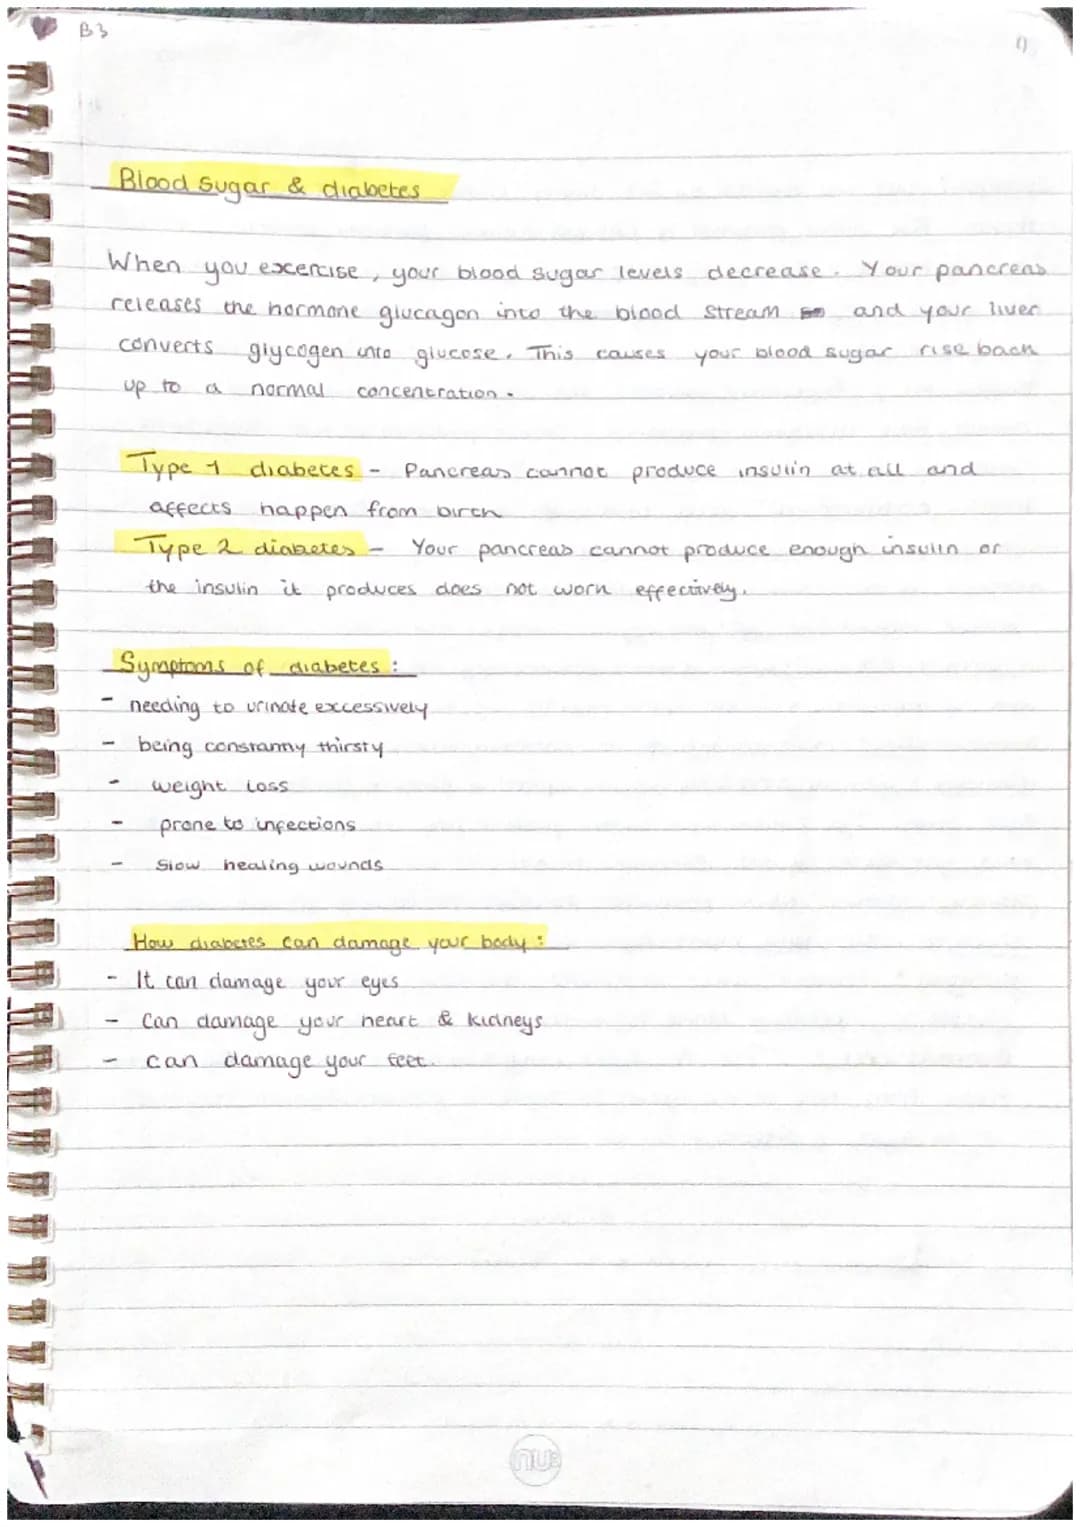 B3
Blood sugar & diabetes
When you excercise, your blood sugar levels decrease. Your pancreas
releases the hormone glucagon into the blood stream and your liver
converts glycogen into glucose. This causes your blood sugar rise back
up to a normal concentration.
Type 1 diabetes - Pancreas cannot produce insulin at all and
affects happen from birth
Type 2 diabetes - Your pancreas cannot produce enough insulin or
the insulin it produces does not work effectively.
Symptoms of diabetes:
- needing to urinate excessively
- being constantly thirsty
- weight loss
- prone to infections
- slow healing wounds
How diabetes can damage your body:
- It can damage your eyes
- Can damage your heart & kidneys
- can damage your feet.
nu: